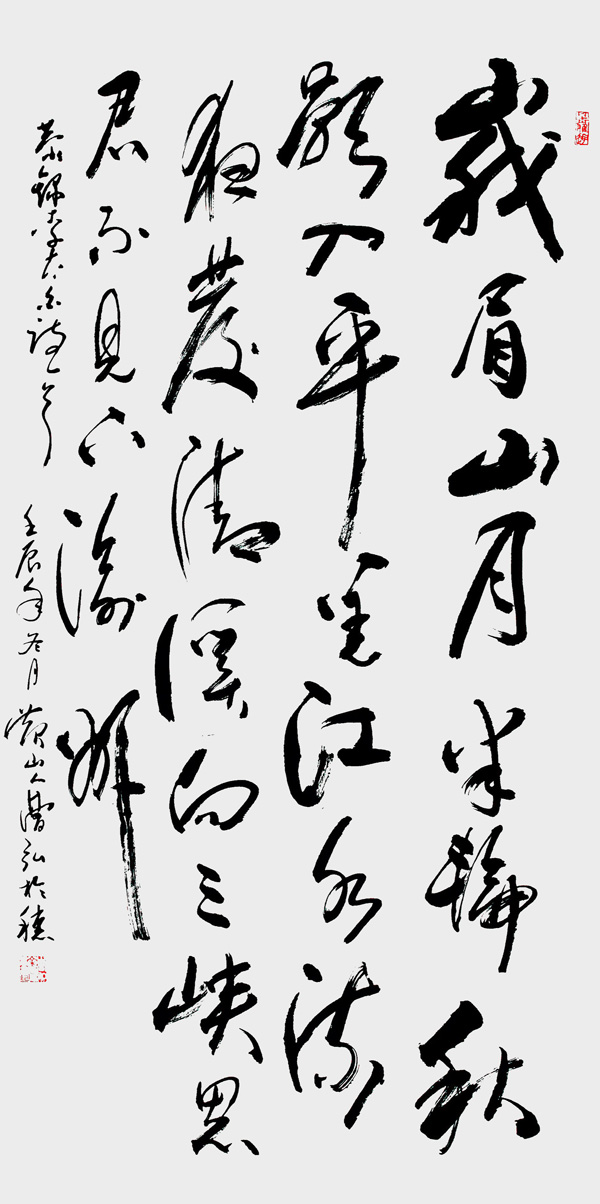 峩眉山月半輪秋
影入平羌江水流
夜發清溪向三峽思
君不見下渝州
恭錄李太白詩一首 壬辰年冬月 山人弘於穗